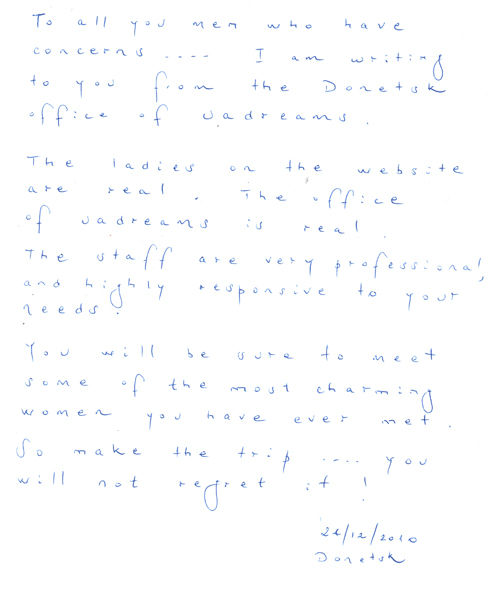 To all you men who have
concerns .... I am writing
to you from the Donetsk
office of uadreams.
The ladies on the website
are real. The office
of uadreams is real.
The staff are very professional,
and highly responsive to your
needs.
You will be sure to meet
some of the most charming
women you have ever met.
So make the trip .... you
will not regret it!
/12/2010
Donetsk